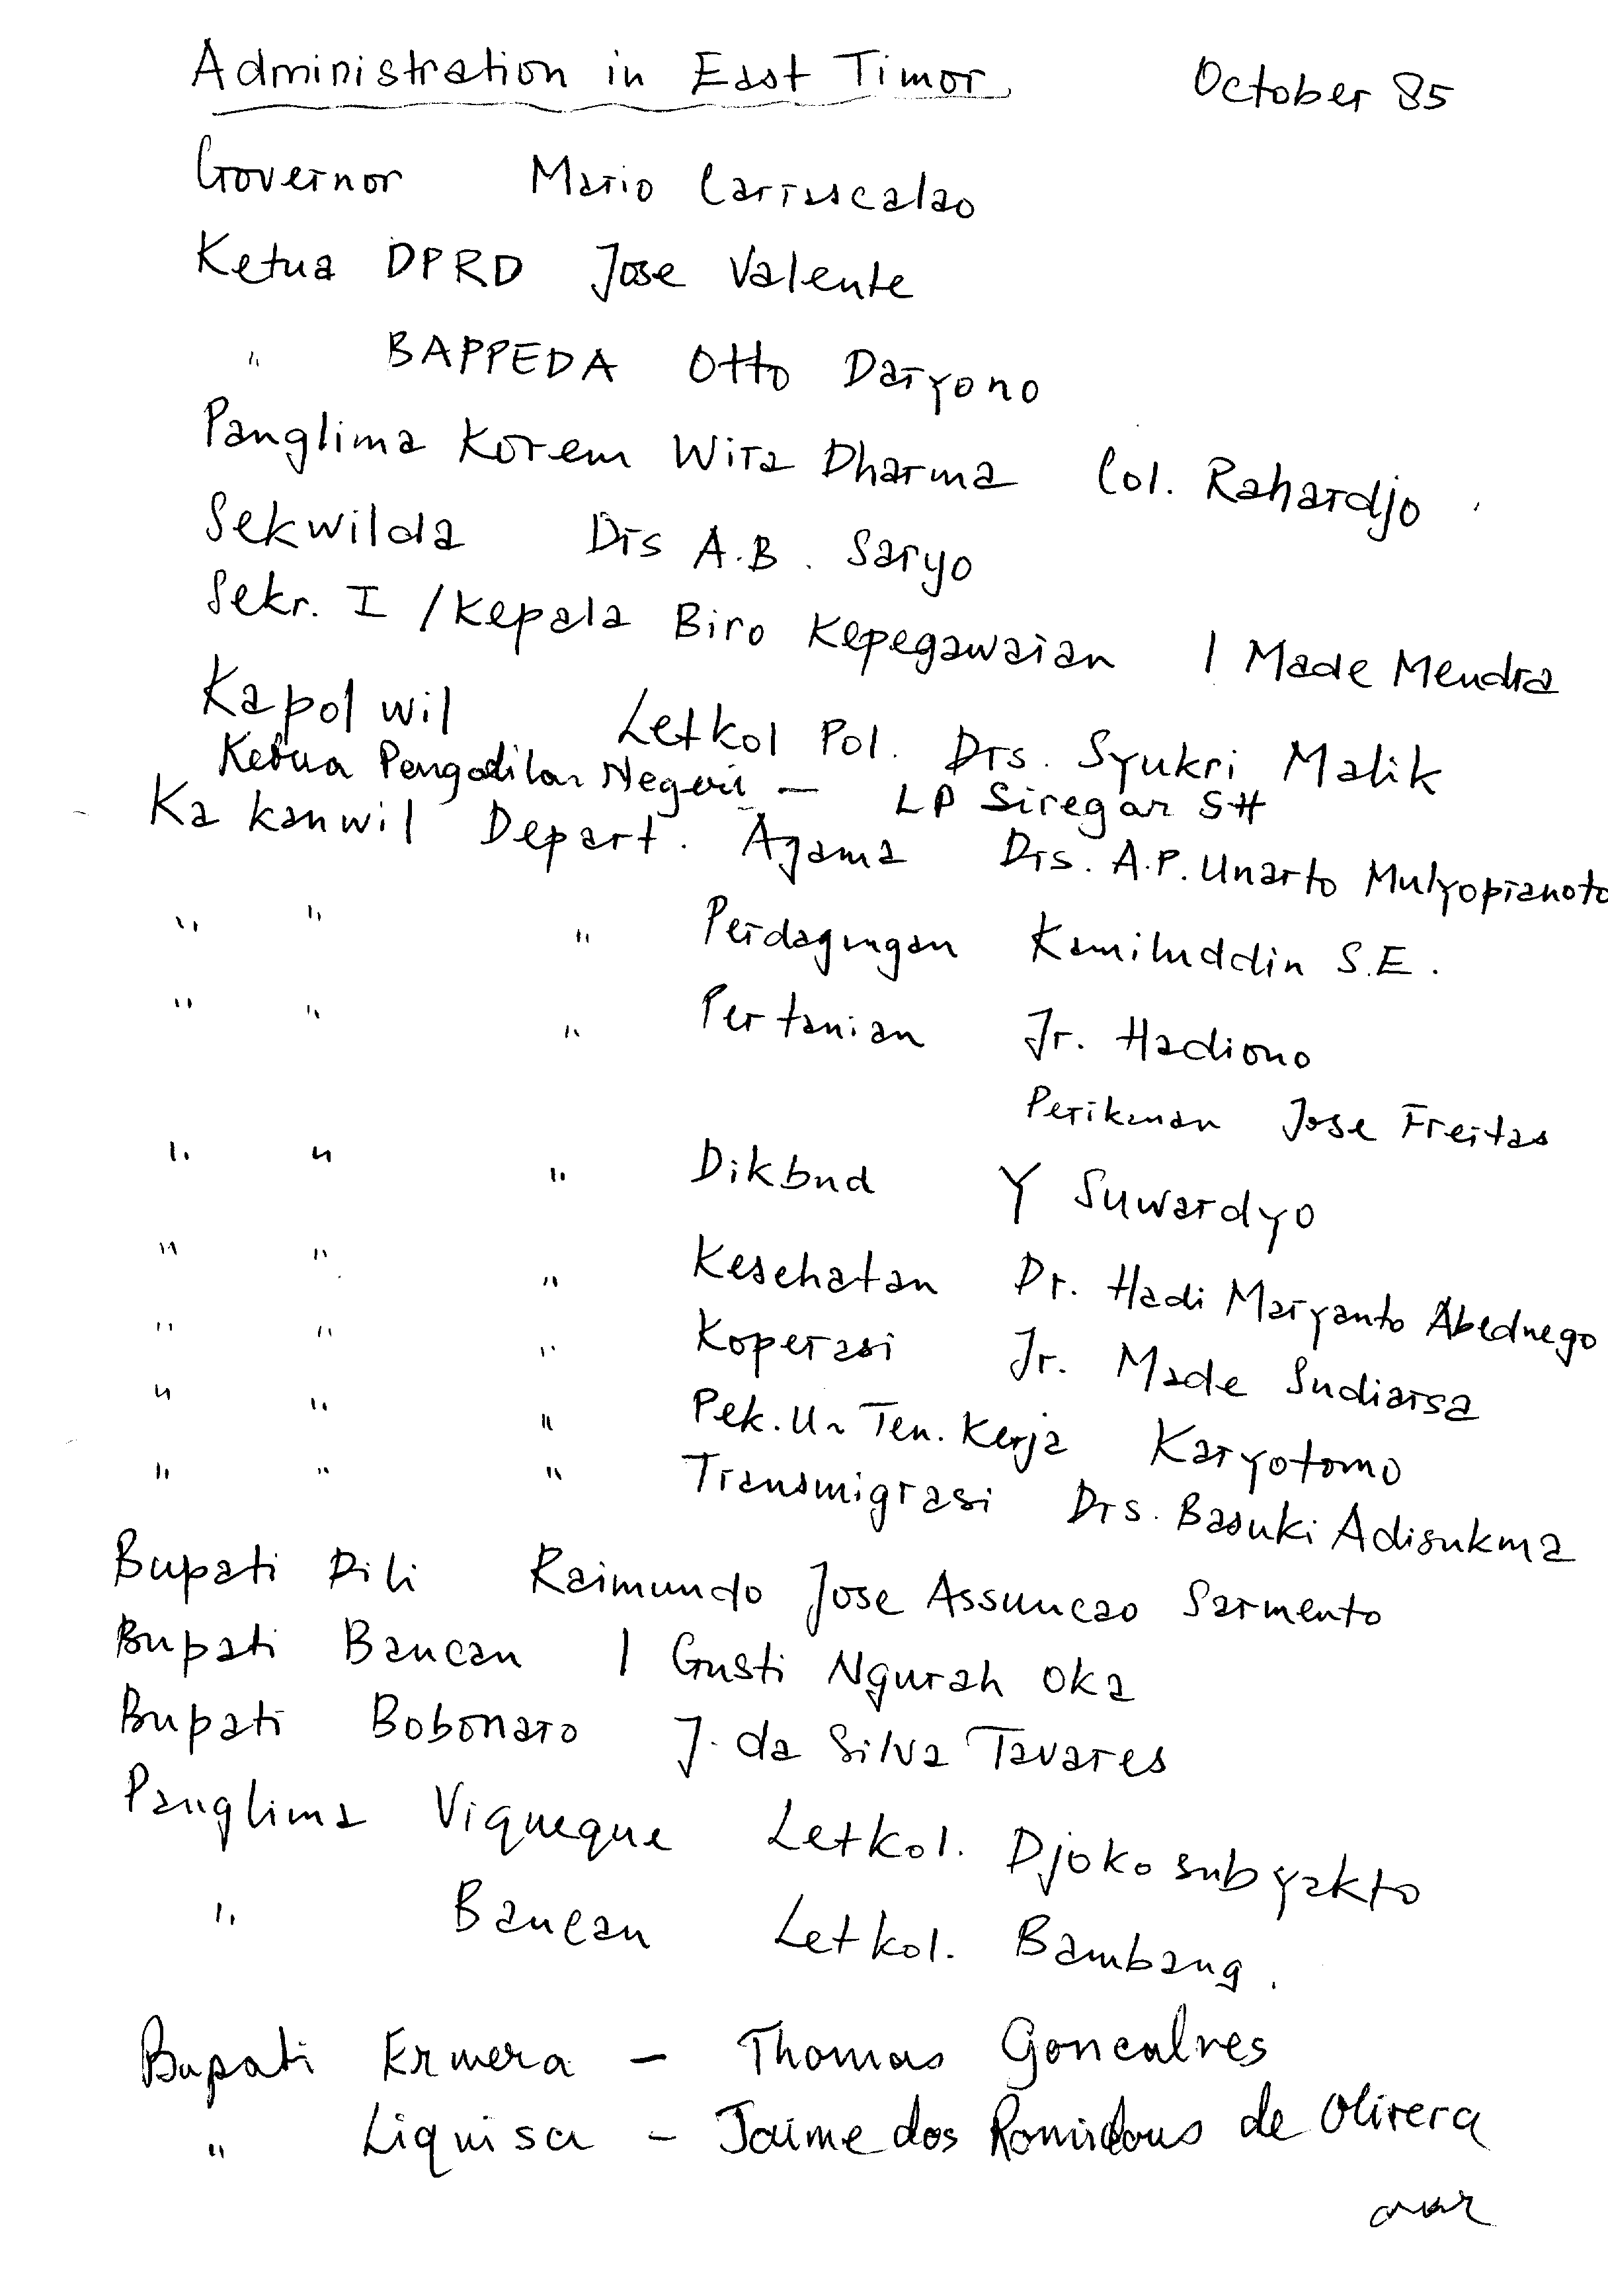 Administration in East Timor October 85
Governor Mario Carrascalao
Ketua DPRD Jose Valente
" BAPPEDA Otto Daryono
Panglima Korem Wira Dharma Col. Rahardjo
Sekwilda Drs A.B. Saryo
Sekr. I / Kepala Biro Kepegawaian I Made Mendra
Kapolwil Letkol Pol. Drs. Syukri Malik
Ketua Pengadilan Negeri - LP Siregar SH
Ka kanwil Depart. Agama Drs. A.P. Unarto Mulyopranoto
" " " Perdagangan Kamiluddin S.E.
" " " Pertanian Jr. Hadiono
Perikanan Jose Freitas
" " " Dikbud Y Suwardyo
" " " Kesehatan Dr. Hadi Maryanto Abednego
" " " Koperasi Jr. Made Sudiarsa
" " " Pek. Un Ten. Kerja Karyotomo
" " " Transmigrasi Drs. Basuki Adisukma
Bupati Dili Raimundo Jose Assuncao Sarmento
Bupati Baucau I Gusti Ngurah Oka
Bupati Bobonaro J. da Silva Tavares
Panglima Viqueque Letkol. Djoko Subyakto
" Baucau Letkol. Bambang.
Bupati Ermera - Thomas Goncalves
" Liquisa - Jaime dos de Olivera